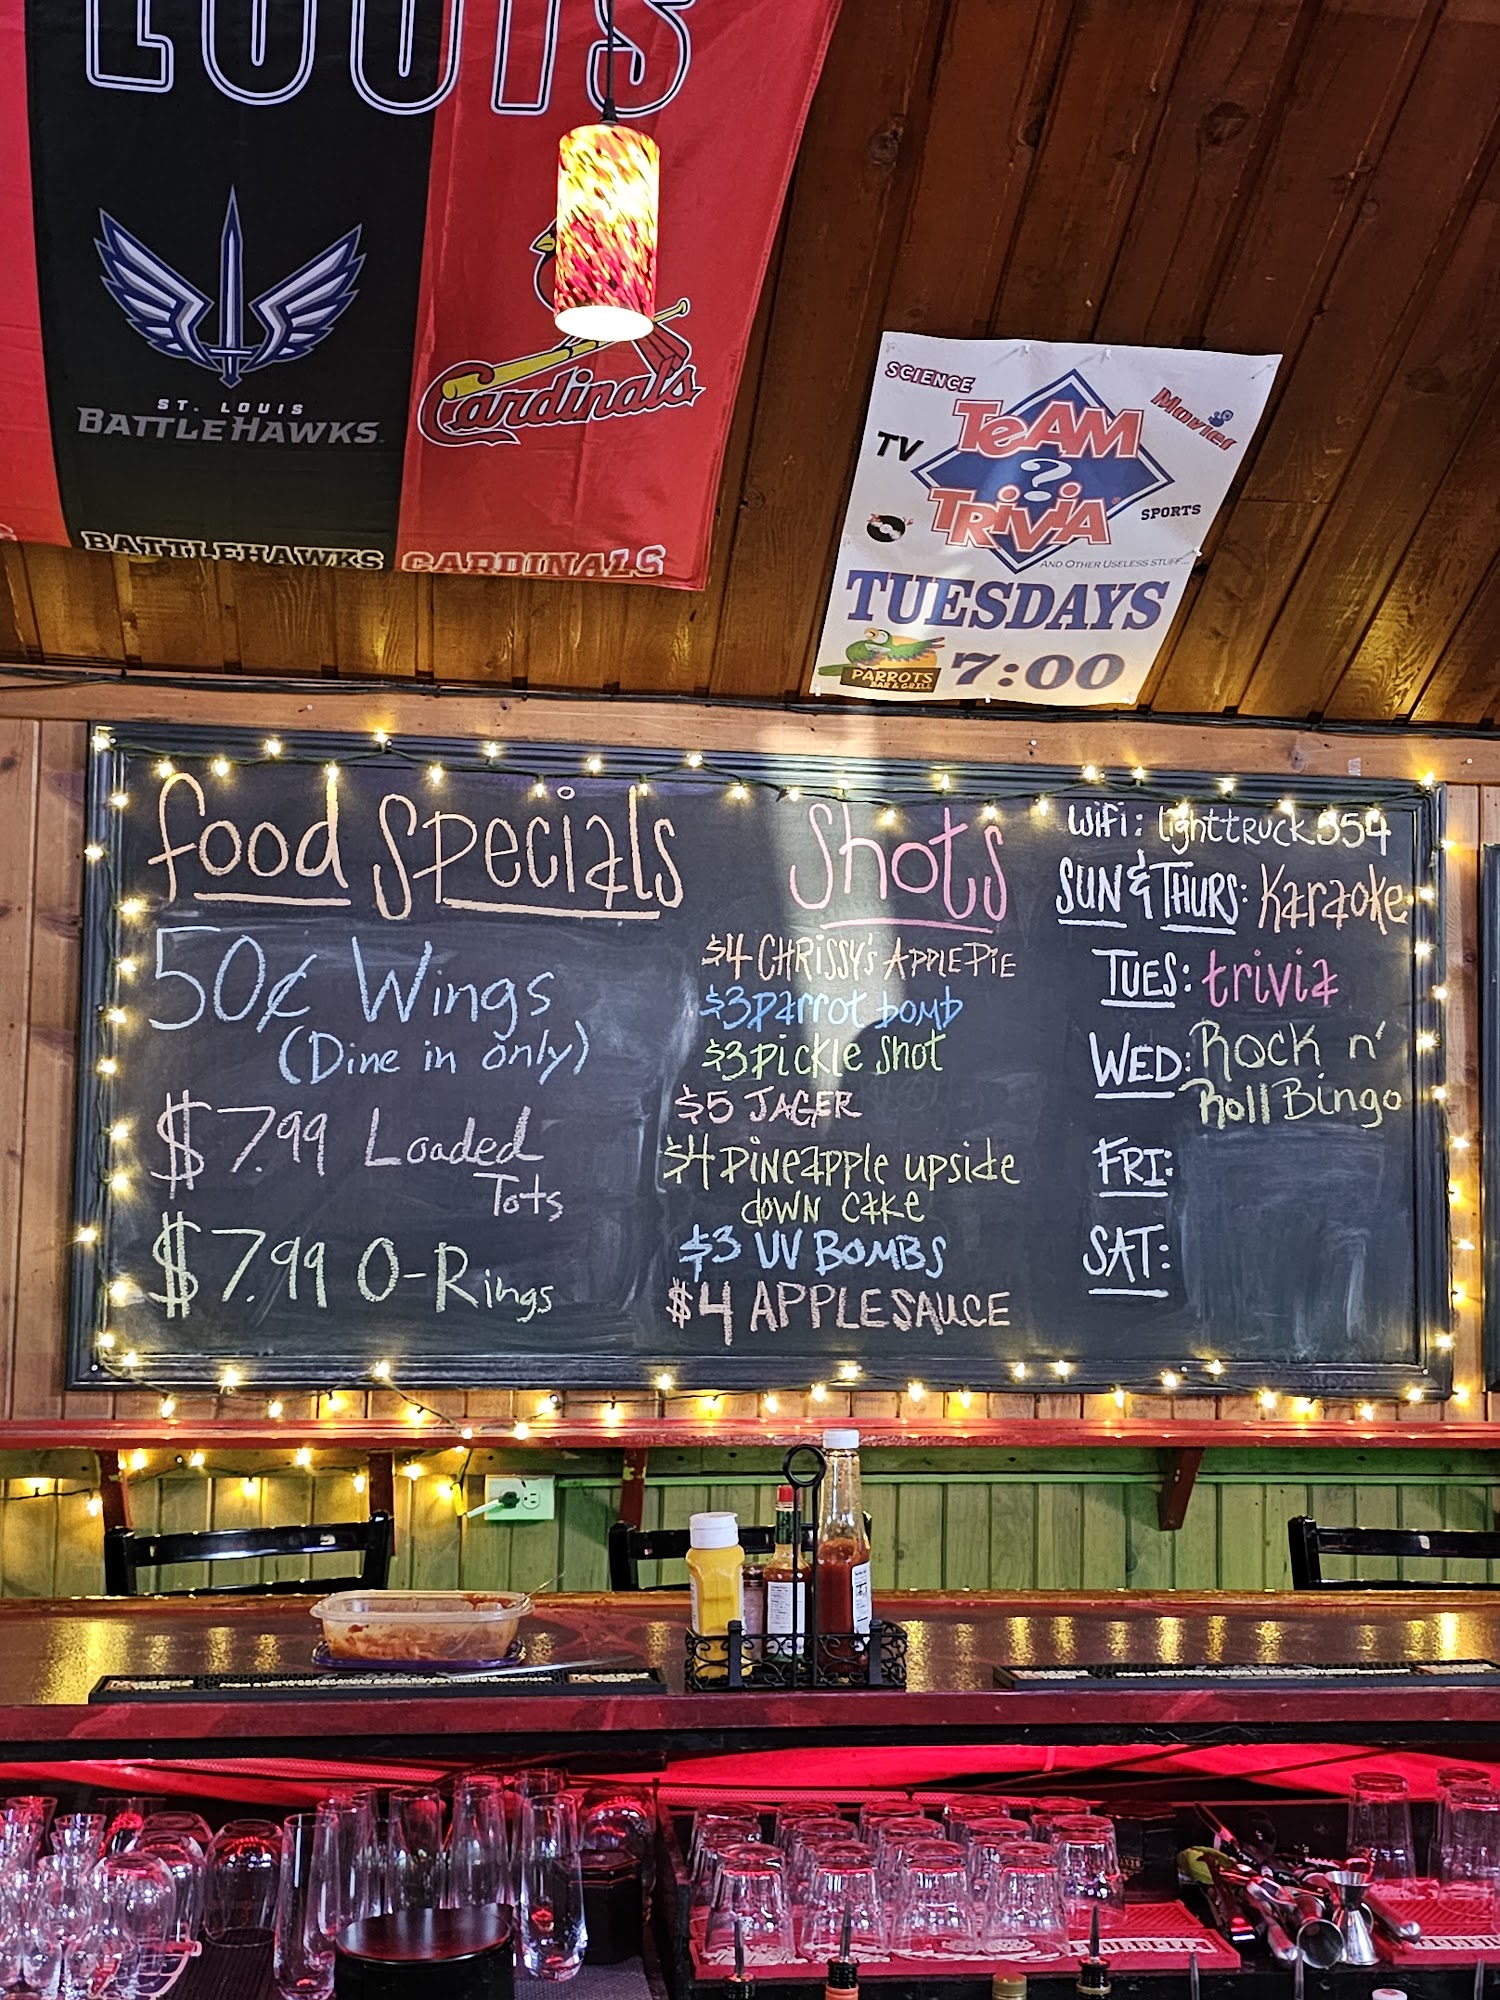 LOUIS
ST. LOUIS
BATTLEHAWKS
Cardinals
BATTLEHAWKS
CARDINALS
SCIENCE
Movies
TV
TEAM
?
TRIVIA
SPORTS
AND OTHER USELESS STUFF...
TUESDAYS
PARROTS
BAR & GRILL
7:00
food specials
50¢ Wings
(Dine in only)
$7.99 Loaded
Tots
$7.99 O-Rings
Shots
$4 CHRISSY'S APPLE PIE
$3 parrot bomb
$3 pickle shot
$5 JAGER
$4 pineapple upside
down cake
$3 UV BOMBS
$4 APPLESAUCE
WiFi: lighttruck554
SUN & THURS: Karaoke
TUES: trivia
WED: Rock n'
Roll Bingo
FRI:
SAT: